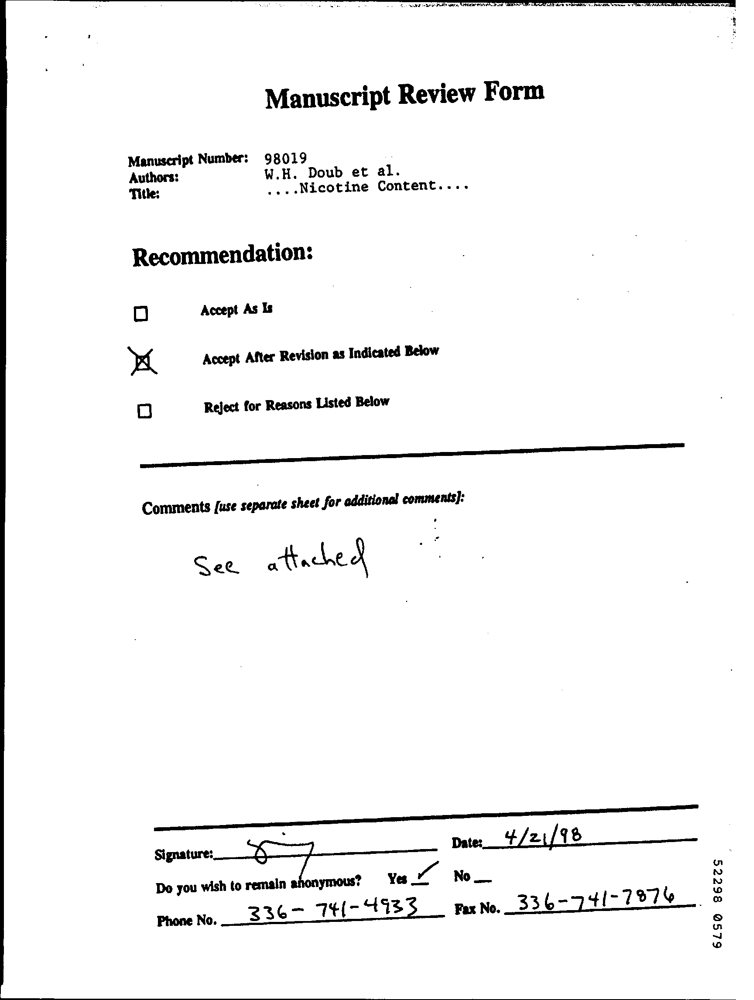 Manuscript Review Form
Manuscript Number: 98019
Authors: W.H. Doub et al.
Title: ....Nicotine Content....
Recommendation:
Accept As Is
Accept After Revision as Indicated Below
Reject for Reasons Listed Below
Comments [use separate sheet for additional comments]:
See attached
Signature: Date: 4/21/98
Do you wish to remain anonymous? Yes ✓ No
Phone No. 336-741-4933 Fax No. 336-741-7876
52298 0579